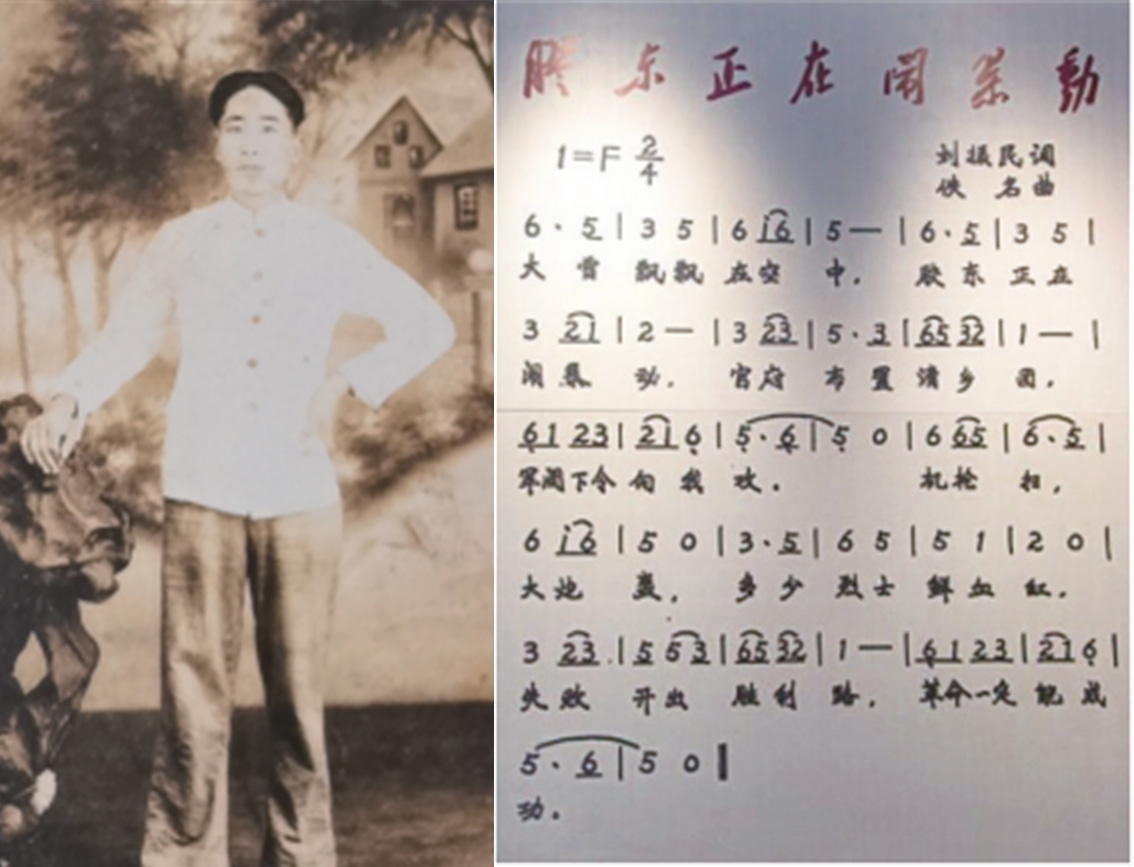 胶东正在闹暴動
1=F 2/4
刘振民调
佚名曲
6· 5 | 3 5 | 6 i6 | 5 — | 6· 5 | 3 5 |
大雪飘飘在空中。胶东正在
3 21 | 2 — | 3 23 | 5· 3 | 65 32 | 1 — |
闹暴动。官府布置清乡团。
61 23 | 21 6 | 5· 6 | 5 0 | 6 65 | 6· 5 |
军阀下令向我攻。机枪扫,
6 i6 | 5 0 | 3· 5 | 6 5 | 5 1 | 2 0 |
大炮轰,多少烈士鲜血红。
3 23 | 5 53 | 65 32 | 1 — | 61 23 | 21 6 |
失败开出胜利路,革命一定能成
5· 6 | 5 0 |
功。